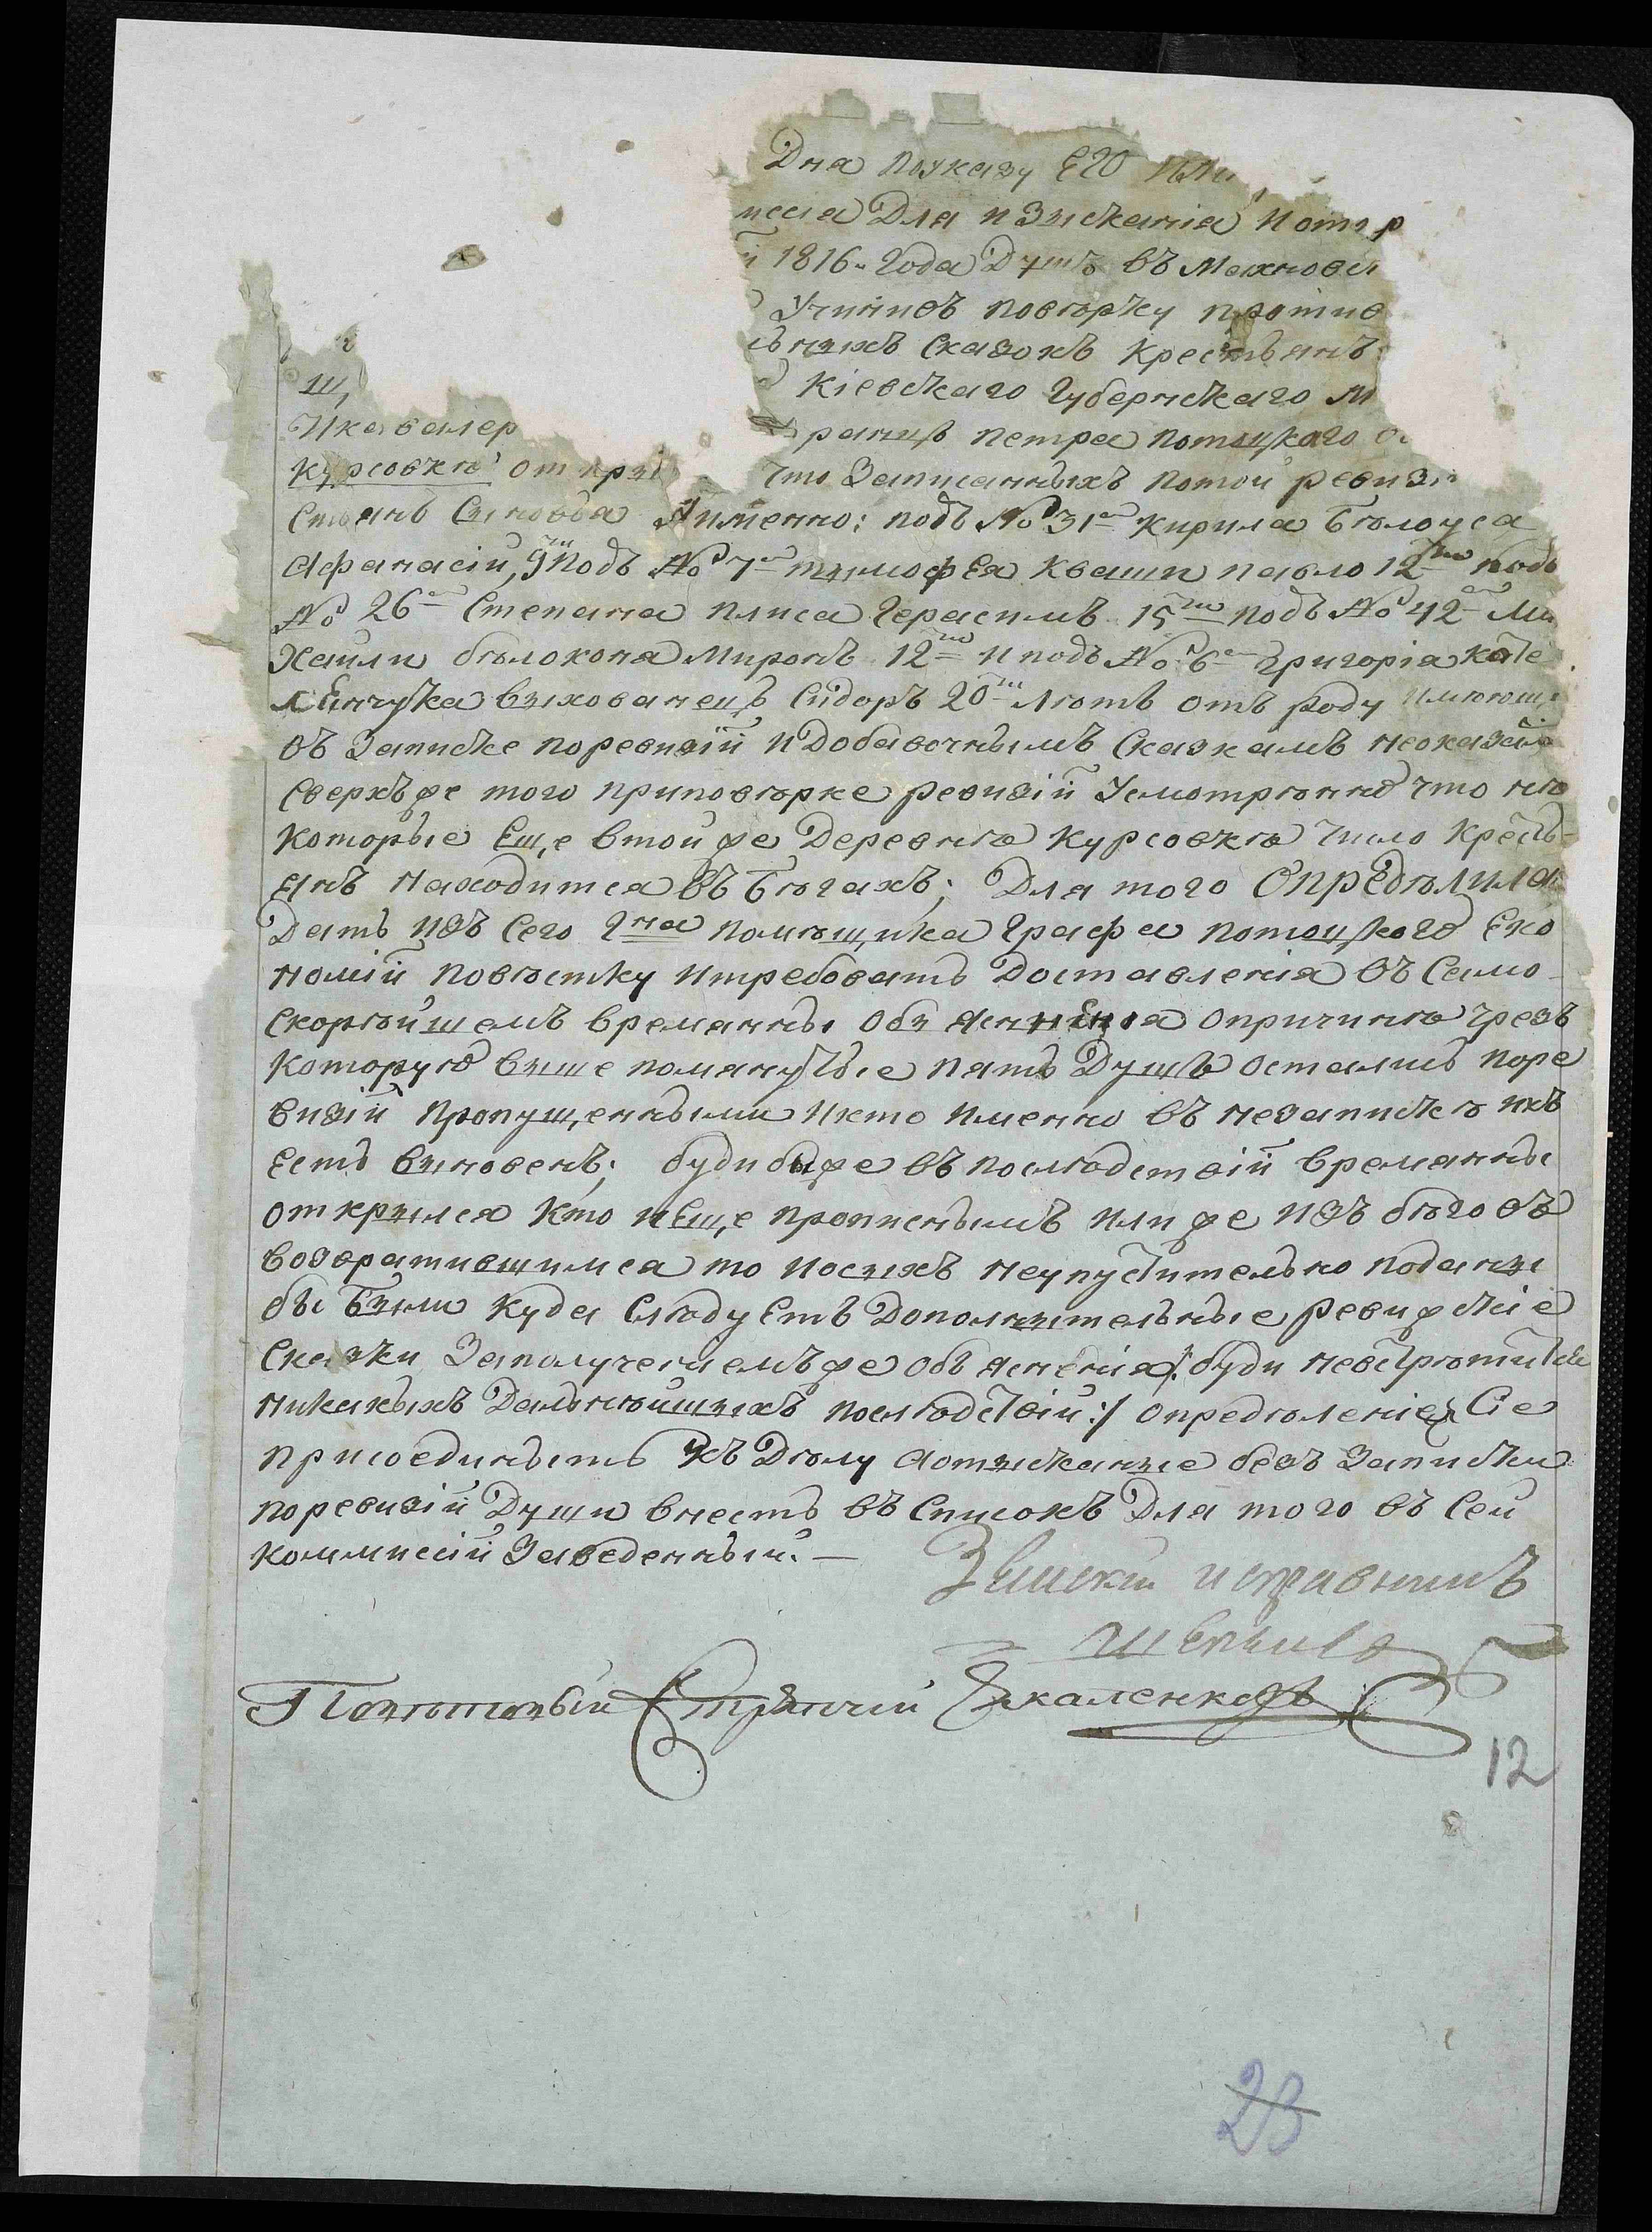 Дня поуказу ЕГО
для изысканія
1816. Года Душъ въ
Учинивъ поверку против
Сказокъ Крестьянъ
Кіевскаго Губернскаго М
И кавалер Петра Потоцкаго
Курсовки что Записанныхъ потой ревиз
Сыновья Аименно: подъ № 31 Кирила Бѣлоуса
Афанасій, 9 подъ № 7 Тимофея Кваши павло 12 подъ
№ 26 Степана Плиса Герасимъ 15 подъ № 42 Ми
хайли бѣлоконя Миронъ 12 и подъ № 6 Григорія Кате
ленчука выхованецъ Сидоръ 20 лѣтъ отъ роду
въ Записке поревизій и Добавочнымъ Сказкамъ
сверхъ же того приповѣрке ревизій Усмотрѣнно что нѣ
которые Еще втой же Деревнѣ Курсовкѣ число Кресть-
янъ находится въ Бѣгахъ; Для того ОпреДѣлила
Дать изъ Сего Гна помѣщика Графа Потоцкого Еко
номій повѣстку итребовать Доставленія въ Само
скорѣйшемъ времянны Объясненія опричинѣ чрезъ
которую выше помянутые пять Душъ остались поре
визій пропущенными икто именно въ незапискѣ ихъ
есть виновенъ; буди быже въ послѣдствій времянны
открылся кто иЕще прописнымъ или же изъ бѣговъ
возвратившимся то иосихъ неупустительно поданы
бы Были куда СлѣдуЕтъ Дополнительные ревижскіе
Сказки Заполучениемъ же объясненія /: буди невстрѣтится
никакихъ Дальнѣйшихъ послѣдствій :/ опредѣленіе Сіе
присоединить къ Дѣлу аотысканые безъ Записки
поревизій Души внесть въ Списокъ Для того въ Сей
коммисіи Заведенный. —
Земскій исправникъ
Повѣтовый Стряпчій
12
23